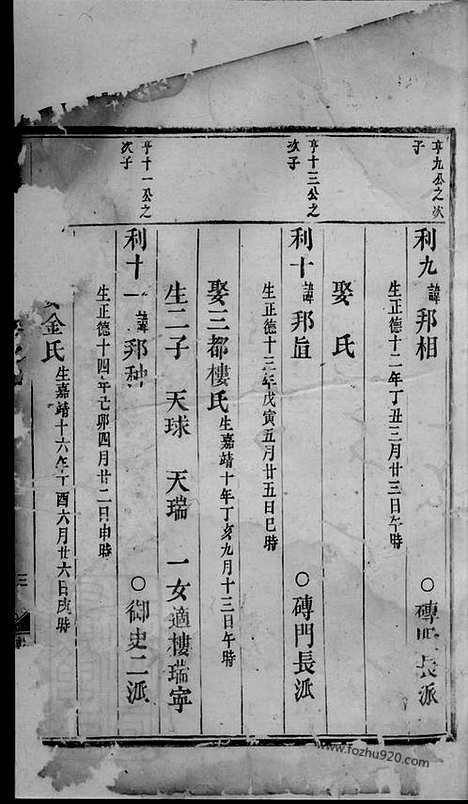 亨九公之次子
利九 諱邦相 ○磚門長派
生正德十二年丁丑三月廿三日午時
娶 氏
亨十三公之次子
利十 諱邦直 ○磚門長派
生正德十三年戊寅五月廿五日巳時
娶三都樓氏 生嘉靖十年丁亥九月十三日午時
生二子 天球 天瑞 一女適樓瑞寧
亨十一公之次子
利十一 諱邦种 ○御史二派
生正德十四年己卯四月廿二日申時
金氏 生嘉靖十六年丁酉六月廿六日庚時
www.fozhu920.com